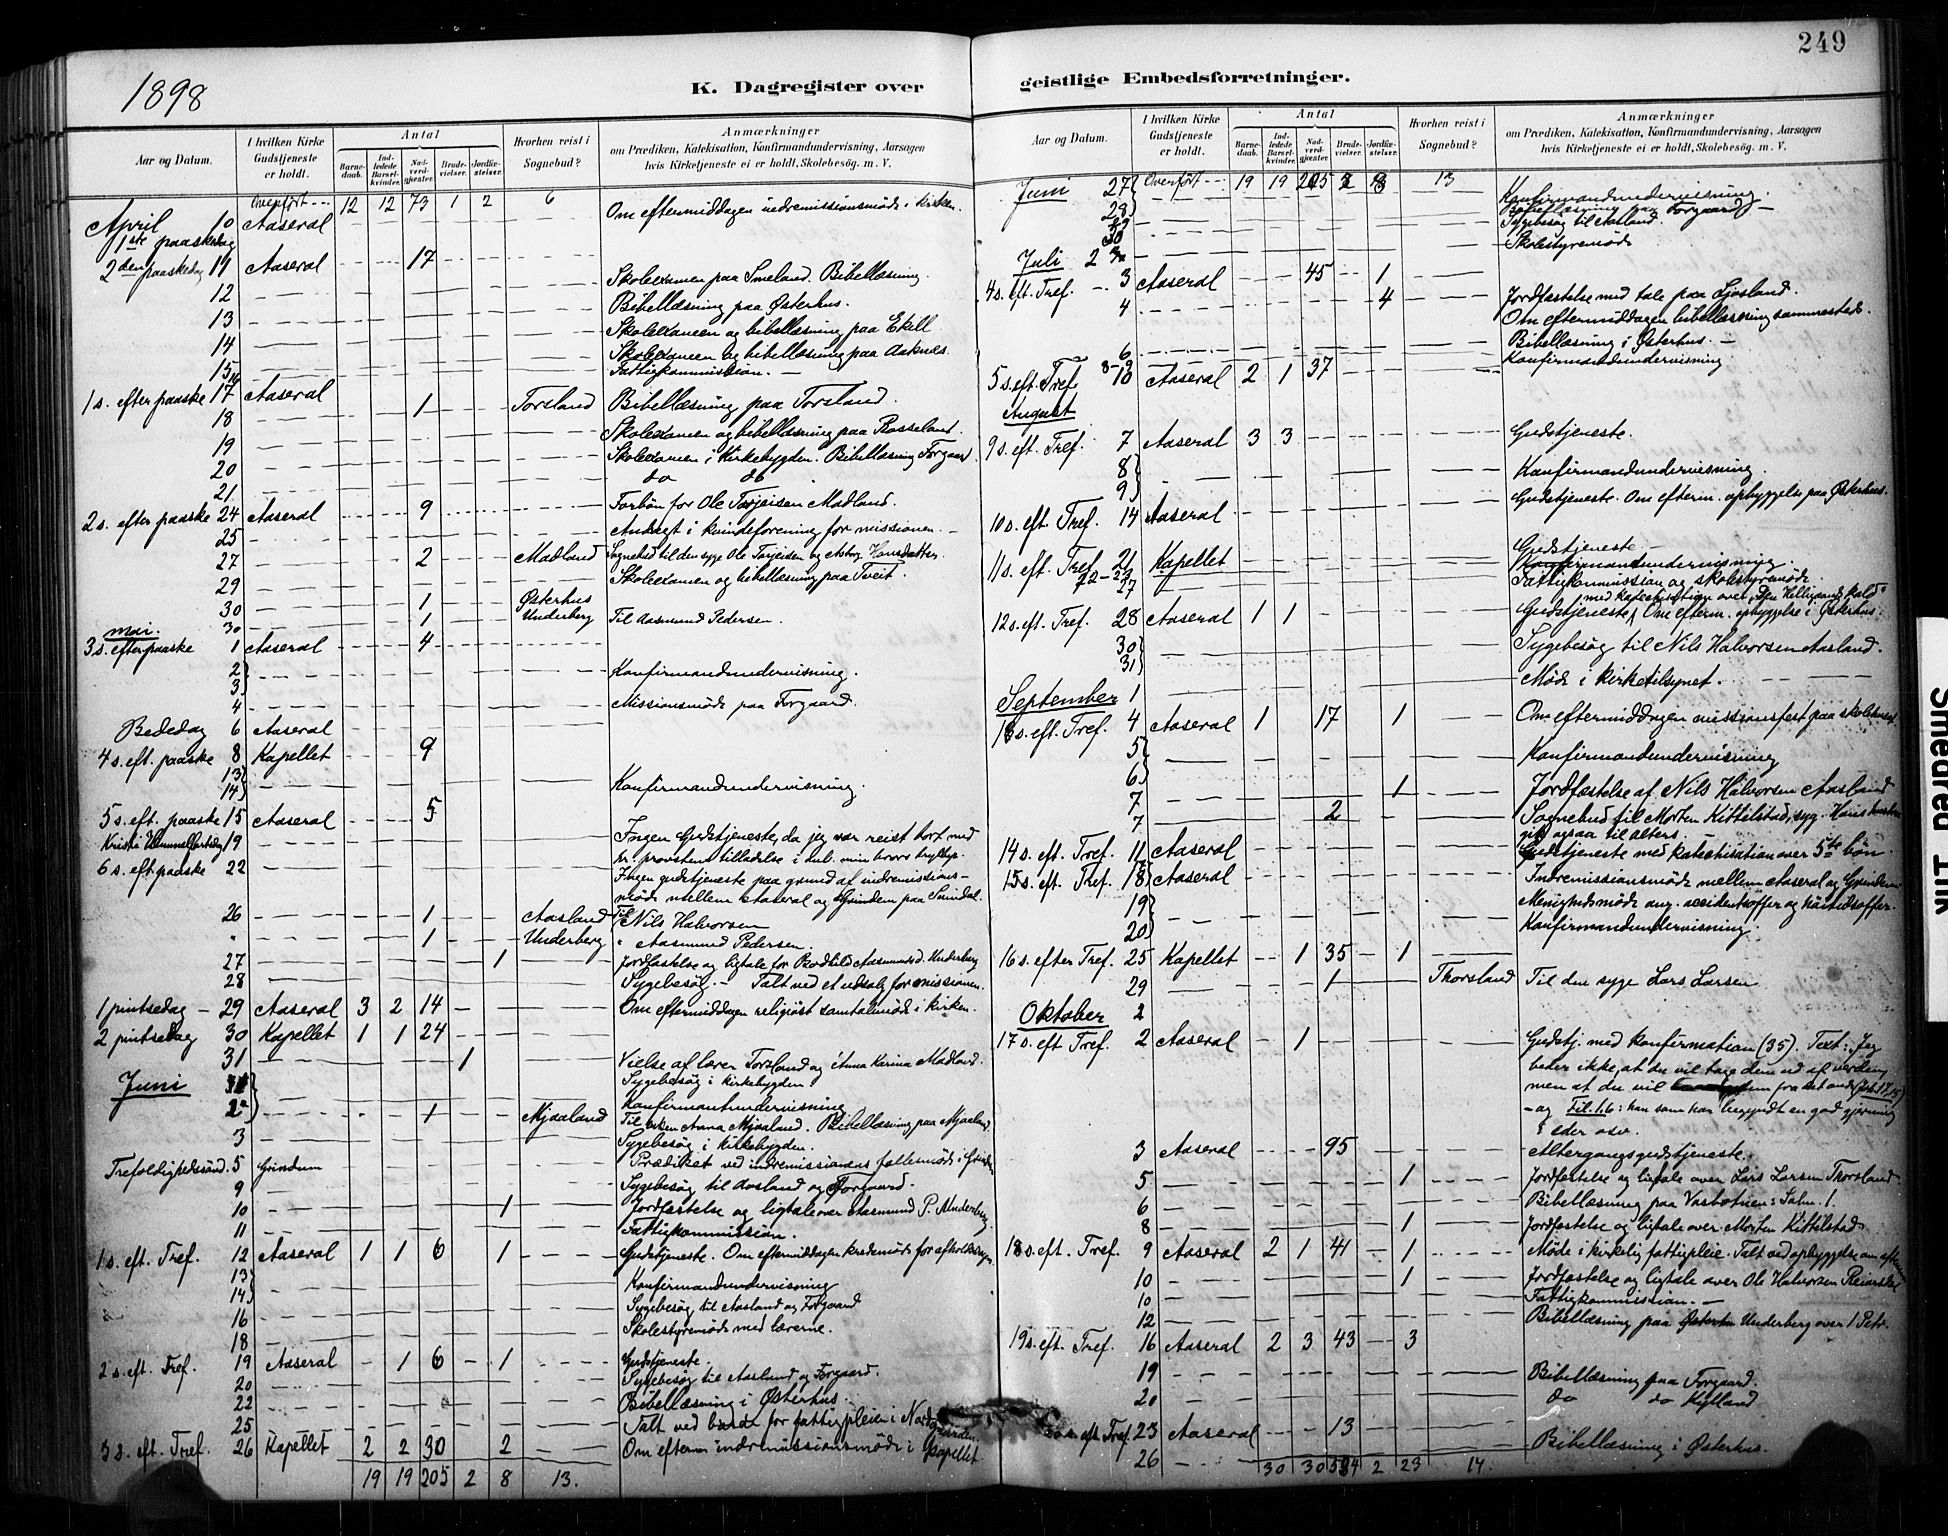 249
1898
K. Dagregister over geistlige Embedsforretninger.
Aar og Datum.
I hvilken Kirke Gudstjeneste er holdt.
Antal
Barnedaab.
Indledede Barselkvinder.
Nadverdgjester.
Brudevielser.
Jordfæstelser.
Hvorhen reist i Sognebud?
Anmærkninger om Prædiken, Katekisation, Konfirmandundervisning, Aarsagen hvis Kirketjeneste ei er holdt, Skolebesøg m. V.
Overført 12 12 73 1 2 6
April 10 Aaseral Om eftermiddagen indremissionsmøde i kirken.
1ste paaskedag
2den paaskedag 11 Aaseral 17
12 Skoleexamen paa Smeland. Bibellæsning.
13 Bibellæsning paa Østerhus.
14 Skoleexamen og bibellæsning paa Ekell
15 Skoleexamen og bibellæsning paa Aaknes.
16 Fattigkommission.
1 s. efter paaske 17 Aaseral 1 Torsland Bibellæsning paa Torsland.
18 Skoleexamen og bibellæsning paa Rosseland.
19 Skoleexamen i Kirkebygden. Bibellæsning Forgaard
20 do do
21
2 s. efter paaske 24 Aaseral 9 Forbøn for Ole Torjeisen Madland.
25 Andagt i kvindeforening for missionen.
27 2 Madland Sognebud til den syge Ole Torjeisen og Asborg Hansdatter.
29 Skoleexamen og bibellæsning paa Tveit.
30 1 Østerhus
30 1 Underberg Til Aasmund Pedersen.
mai.
3 s. efter paaske 1 Aaseral 4
2
3 Konfirmandundervisning.
4 Missionsmøde paa Forgaard.
Bededag 6 Aaseral
4 s. eft. paaske 8 Kapellet 9
13
14 Konfirmandundervisning.
5 s. eft. paaske 15 Aaseral 5
Kristi Himmelfartsdag 19 Ingen Gudstjeneste, da jeg var reist bort med
hr. provstens tilladelse i anl. min brors bryllup.
6 s. eft. paaske 22 Ingen gudstjeneste paa grund af indremissions-
møde mellem Aaseral og Grindem paa Sundal.
26 1 Aasland Til Nils Halvorsen
" 1 Underberg " Aasmund Pedersen.
27 1 Jordfæstelse og ligtale for Bodhild Aasmundsd. Underberg
28 Sygebesøg. Talt ved et udsalg for missionen.
1 pintsedag 29 Aaseral 3 2 14 Om eftermiddagen religiøst samtalemøde i kirken.
2 pintsedag 30 Kapellet 1 1 24
31 1 Vielse af lærer Torsland og Anna Karina Madland.
Sygebesøg i kirkebygden
Juni 1
2 Konfirmantundervisning
1 Mjaaland Til enken Anna Mjaaland. Bibellæsning paa Mjaaland.
3 Sygebesøg i kirkebygden.
Trefoldighedssønd. 5 Grindum Prædiket ved indremissionens fællesmøde i Grindem
9 Sygebesøg til Aasland og Forgaard.
10 1 Jordfæstelse og ligtale over Aasmund P. Underberg
11 Fattigkommission.
1 s. eft. Tref. 12 Aaseral 1 1 6 1 Gudstjeneste. Om eftermiddagen kredsmøde for afholdssagen
13
14 Konfirmandundervisning
16 Sygebesøg til Aasland og Forgaard
18 Skolestyremøde med lærerne.
2 s. eft. Tref. 19 Aaseral 1 6 1 Gudstjeneste.
20 Sygebesøg til Aasland og Forgaard.
22 Bibellæsning i Østerhus
25 Talt ved basar for fattigpleien i Nord
3 s. eft. Tref. 26 Kapellet 2 2 30 2 Om efterm. indremissionsmøde i Kapellet
19 19 205 2 8 13.
Aar og Datum.
I hvilken Kirke Gudstjeneste er holdt.
Antal
Barnedaab.
Indledede Barselkvinder.
Nadverdgjester.
Brudevielser.
Jordfæstelser.
Hvorhen reist i Sognebud?
Anmærkninger om Prædiken, Katekisation, Konfirmandundervisning, Aarsagen hvis Kirketjeneste ei er holdt, Skolebesøg m. V.
Juni 27 Overført 19 19 205 2 8 13
28 Konfirmandundervisning.
29 Bibellæsning paa Forgaard
30 Sygebesøg til Aasland.
Juli 2 Skolestyremøde
4 s. eft. Tref. 3 Aaseral 45 1
4 4 Jordfæstelse med tale paa Ljosland.
Om eftermiddagen bibellæsning sammesteds.
6 Bibellæsning i Østerhus.
8-9 Konfirmandundervisning
5 s. eft. Tref. 10 Aaseral 2 1 37
August
9 s. eft. Tref. 7 Aaseral 3 3 Gudstjeneste.
8
9 Konfirmandundervisning.
10 s. eft. Tref. 14 Aaseral Gudstjeneste. Om efterm. opbyggelse paa Østerhus.
11 s. eft. Tref. 21 Kapellet Gudstjeneste
22-23 Konfirmandundervisning.
27 Fattigkommission og skolestyremøde.
med katechisation over "Den Helligaands kald"
12 s. eft. Tref. 28 Aaseral 1 1 Gudstjeneste. Om efterm. opbyggelse i Østerhus.
30
31 Sygebesøg til Nils Halvorsen Aasland.
September 1 Møde i kirketilsynet.
13 s. eft. Tref. 4 Aaseral 1 17 1 Om eftermiddagen missionsfest paa skolehuset
5
6 Konfirmandundervisning
7 1 Jordfæstelse af Nils Halvorsen Aasland
7 2 Sognebud til Morten Kittelstad, syg. Hans hustru
gik ogsaa til alters.
14 s. eft. Tref. 11 Aaseral Gudstjeneste med katechisation over 5te bøn
15 s. eft. Tref. 18 Aaseral Indremissionsmøde mellem Aaseral og Grindem
19 Menighedsmøde ang. accidentsoffer og høitidsoffer.
20 Konfirmandundervisning.
16 s. efter Tref. 25 Kapellet 1 35 1
29 1 Thorsland Til den syge Lars Larsen
Oktober 2
17 s. eft Tref. 2 Aaseral 1 Gudstj. med Konfirmation (35). Text: Jeg
beder ikke, at du vil tage dem ud af verden,
men at du vil dem fra det onde (Joh 17,15)
- og Fil. 1.6: han som har begyndt en god gjerning
i eder osv.
3 Aaseral 95 Altergangsgudstjeneste.
5 1 Jordfæstelse og ligtale over Lars Larsen Thorsland
6 Bibellæsning paa Vasbotnen: Salm. 1.
8 1 Jordfæstelse og ligtale over Morten Kittelstad
18 s. eft. Tref. 9 Aaseral 2 1 41 1 Møde i kirkelig fattigpleie. Talt ved opbyggelse om efterm.
10 1 Jordfæstelse og ligtale over Ole Halvorsen
10 Fattigkommission.
12 Bibellæsning paa Underberg over 1 Petr.
19 s. eft. Tref. 16 Aaseral 2 3 43 3
19 Bibellæsning paa Forgaard.
20 do do Kylland
s. eft Tref. 23 Aaseral 13
26 Bibellæsning i Østerhus.
30 30 2 23 14.
Smedred Trik